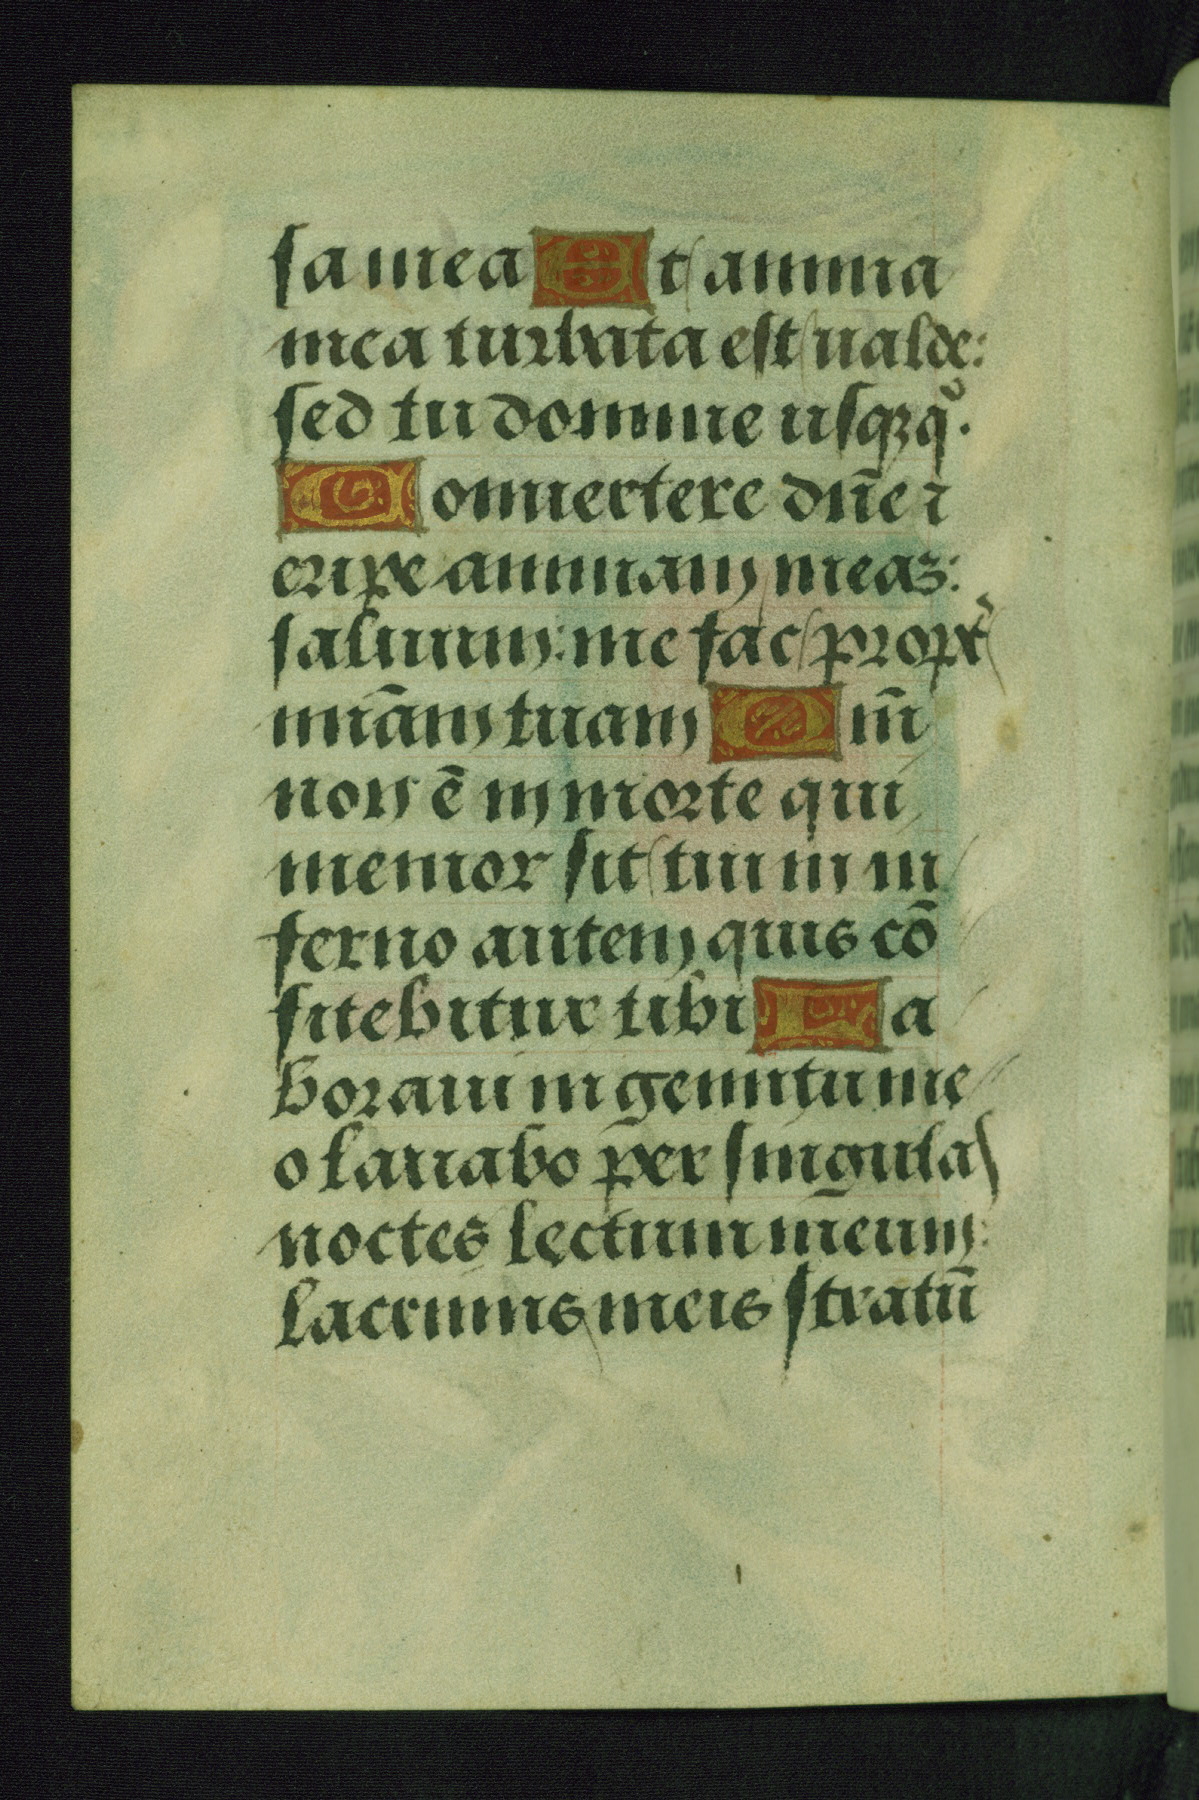 sa mea Et anima
mea turbata est ualde:
sed tu domine usqꝫ qͦ.
Conuertere dn̄e ⁊
eripe animam meaꝫ:
saluum: me fac propt̄
mīam tuam Qm̄
non ē in morte qui
memor sit tui in in
ferno autem quis cō
fitebitur tibi La
boraui in gemitu me
o lauabo per singulas
noctes lectum meum:
lacrimis meis stratū